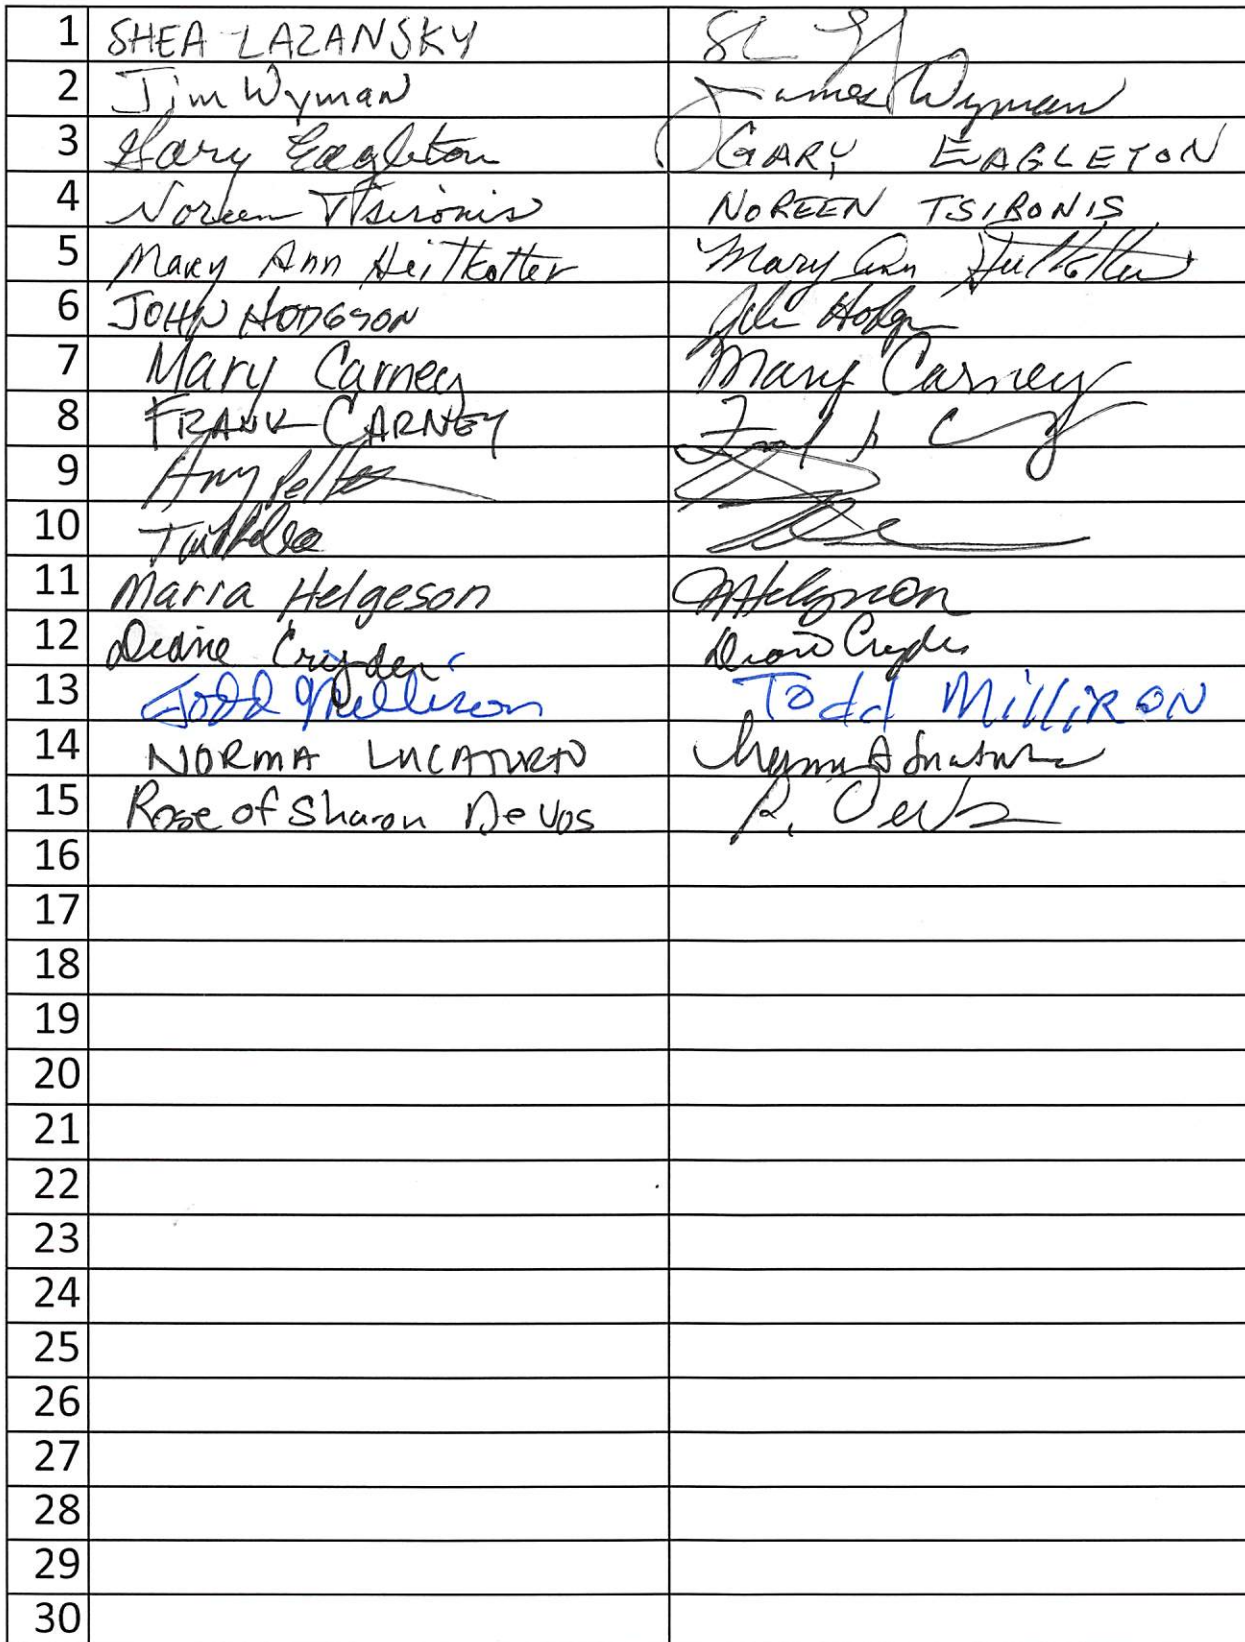 1 SHEA LAZANSKY SL
2 Jim Wyman James Wyman
3 Gary Eagleton GARY EAGLETON
4 Noreen Tsironis NOREEN TSIRONIS
5 Mary Ann Heitkotter Mary Ann Heitkotter
6 JOHN HODGSON
7 Mary Carney Mary Carney
8 FRANK CARNEY
9 Amy
10
11 Maria Helgeson MHelgeson
12 Diane Cryder Diane Cryder
13 Todd Milliron Todd MilliRON
14 NORMA LUCATURTO
15 Rose of Sharon DeVos R. DeVos
16
17
18
19
20
21
22
23
24
25
26
27
28
29
30